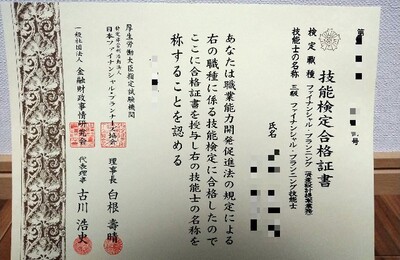 技能検定合格証書
検定職種 ファイナンシャル・プランニング(資産設計提案業務)
技能士の名称 三級 ファイナンシャル・プランニング技能士
第 号
氏名
あなたは職業能力開発促進法の規定による
右の職種に係る技能検定に合格したので
ここに合格証書を授与し右の技能士の名称を
称することを認める
厚生労働大臣指定試験機関
特定非営利活動法人
日本ファイナンシャル・プランナーズ協会
理事長 白根壽晴
一般社団法人 金融財政事情研究会
代表理事 古川浩史